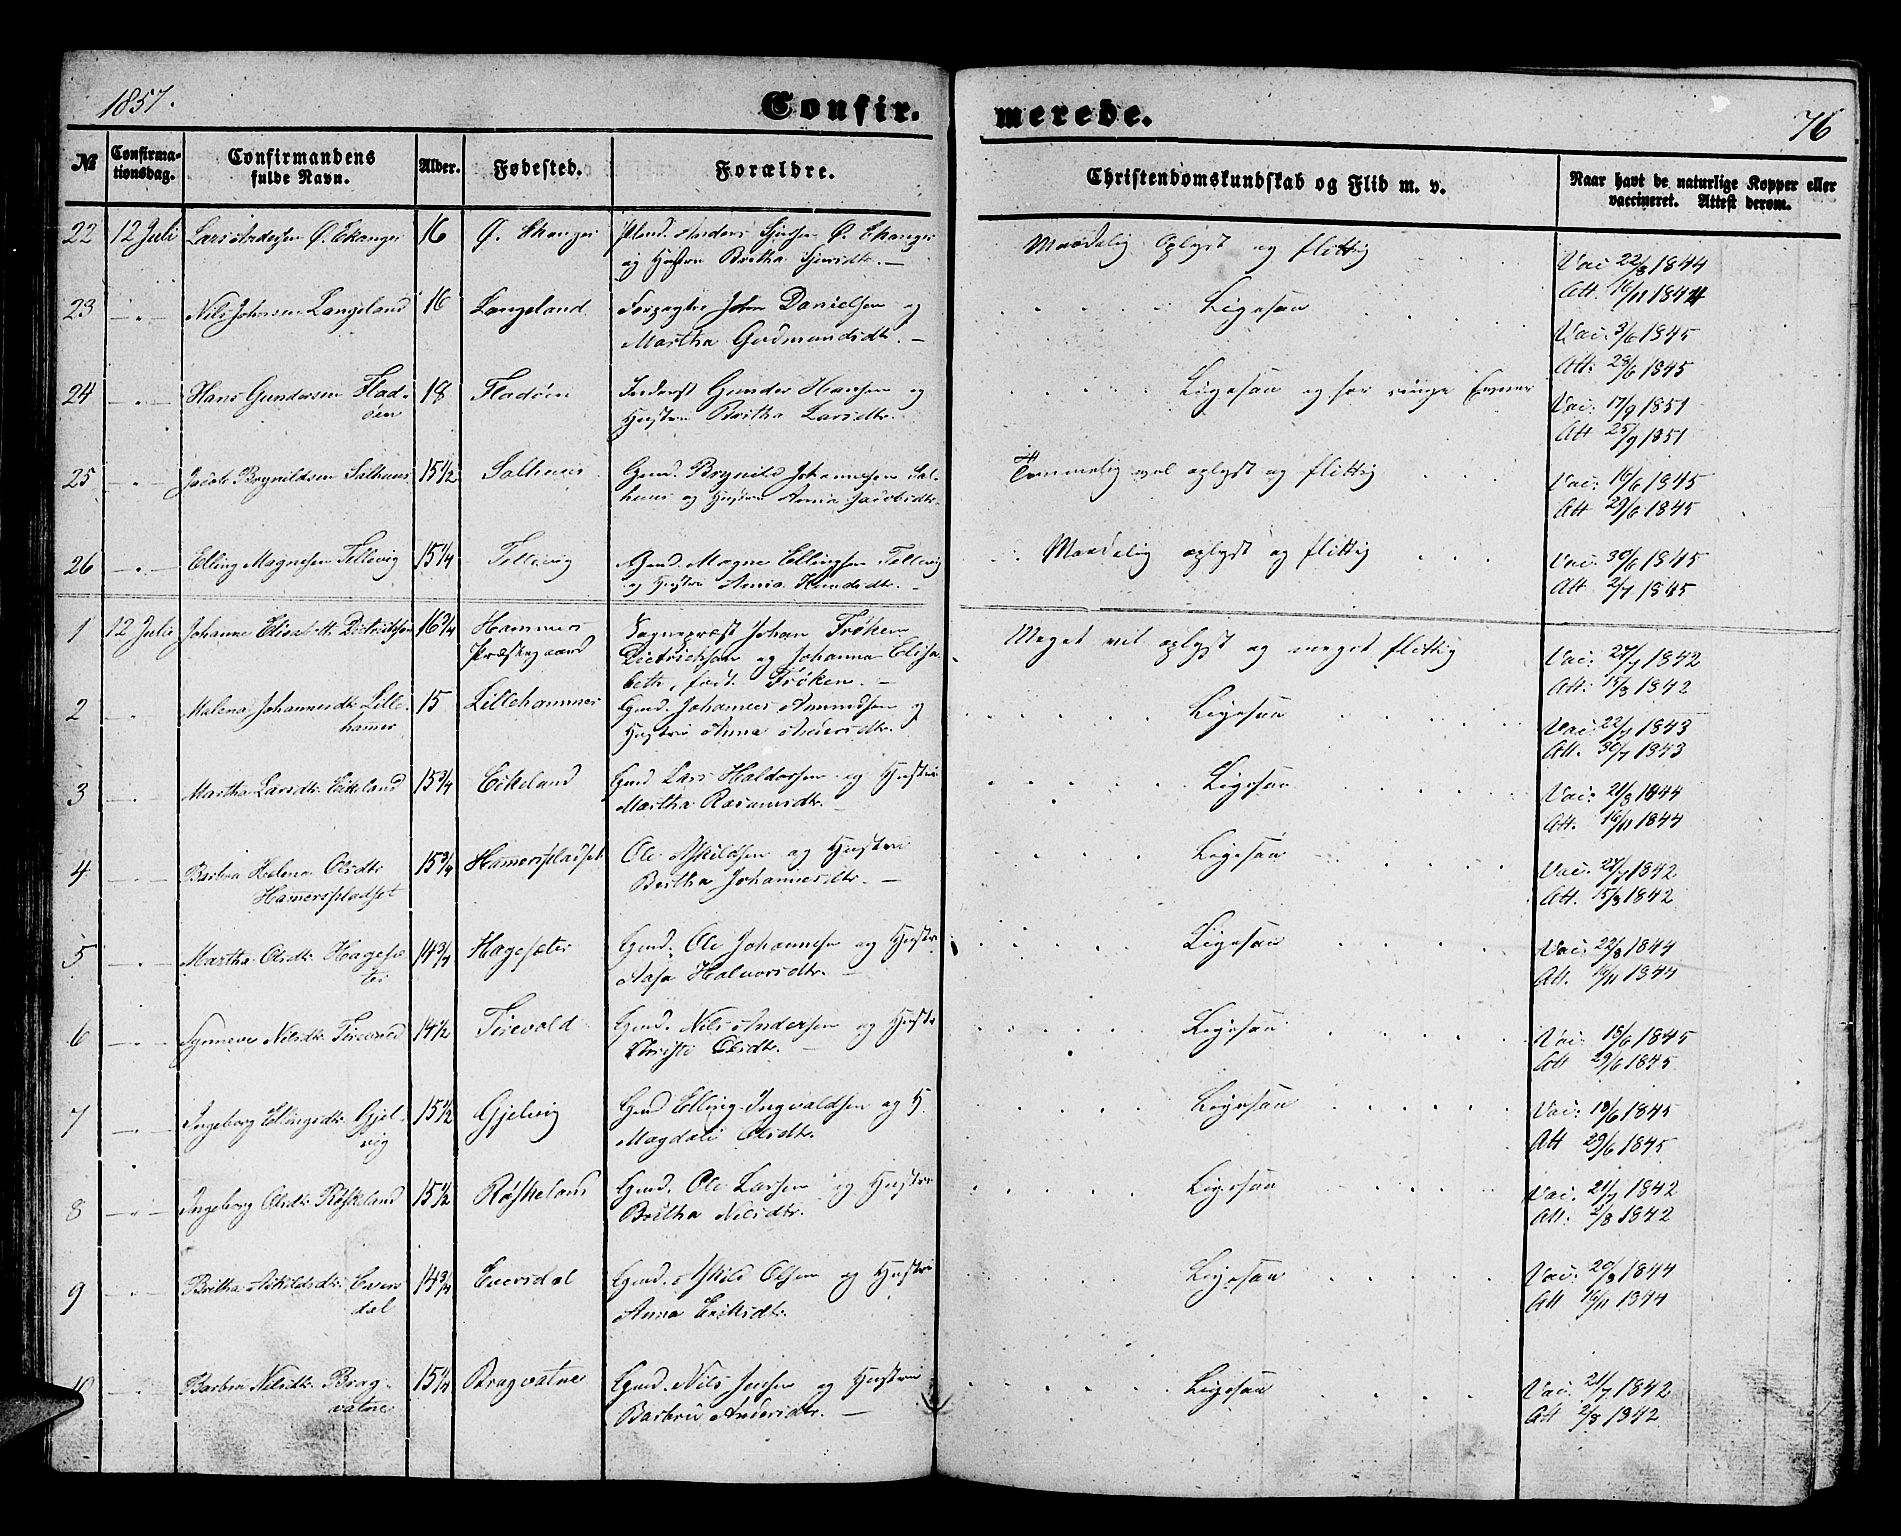 1857.
Confir.
merede.
76
№ Confirma-tionsdag. Confirmandens fulde Navn. Alder. Fødested. Forældre. Christendomskundskab og Flid m. v. Naar havt de naturlige Kopper eller vaccineret. Attest derom.
22 12 Juli Lars Andersen Ø. Ekanger 16 Ø. Ekanger Anders Ø. Ekanger Maadelig oplyst og flittig Vac 22/8 1844
og Hustru Britha Att. 16/11 1844
23 Nils Johnsen Langeland 16 Langeland John Danielsen og Ligesaa Vac: 3/6 1845
Martha Gudmundsdtr. Att: 23/6 1845
24 Hans Gundersen Flad- 18 Fladøen Inderst Gunder Hansen og Ligesaa og har ringe Evner Vac: 17/9 1851
øen Hustru Britha Larsdtr. Att 25/9 1851
25 Jacob Brynildsen Salhuus 15 1/2 Salhuus Gmd. Brynild Johannesen Sal- Temmelig vel oplyst og flittig Vac: 16/6 1845
huus og Hustru Anna Jacobsdtr. Att 29/6 1845
26 Elling Magnesen Tellevig 15 1/4 Tellevig Gmd. Magne Ellingsen Tellevig Maadelig oplyst og flittig Vac: 30/6 1845
og Hustru Anna Knudsdtr. Att 2/7 1845
1 12 Juli Johanne Elisabeth Dietrichson 16 3/4 Hammers Sognepræst Johan Frøken Meget vel oplyst og meget flittig Vac: 27/7 1842
Præstegaard Dietrichson og Johanna Elisa- Att: 15/8 1842
beth, født Frøken.
2 Malena Johannesdtr. Lille- 15 Lillehammer Gmd. Johannes Amundsen og Ligesaa Vac: 22/7 1843
hamer Hustru Anna Andersdtr. Att. 30/7 1843
3 Martha Larsdtr. Eikeland 15 3/4 Eikeland Gmd Lars Haldorsen og Hustru Ligesaa Vac: 21/8 1844
Martha Rasmusdtr. Att. 16/11 1844
4 Barbra Helena Olsdtr 15 3/4 Hamerspladset Ole Askildsen og Hustru Ligesaa Vac: 27/7 1842
Hamerspladset Britha Johannesdtr. Att. 15/8 1842
5 Martha Olsdtr. Hagesæ- 14 3/4 Hagesæter Gmd. Ole Johannesen og Hustru Ligesaa Vac: 22/8 1844
ter Aasa Halvorsdtr. Att. 16/11 1844
6 Synneve Nilsdtr. 14 1/2 Gmd. Nils Andersen og Hustr Ligesaa Vac: 18/6 1845
Christi Olsdtr. Att 29/6 1845
7 Ingeborg Ellingsdtr. Gjel- 15 1/2 Gjelvig Gmd Elling Ingvaldsen og H Ligesaa Vac: 18/6 1845
vig Magdeli Olsdtr. Att 29/6 1845
8 Ingeborg Olsdtr. Røskeland 15 1/2 Røskeland Gmd. Ole Larsen og Hustru Ligesaa Vac. 21/7 1842
Britha Nilsdtr. Att: 2/8 1842
9 Britha Askildsdtr. Evers- 14 3/4 Eversdal Gmd. Askild Olsen og Hustru Ligesaa Vac: 20/8 1844
dal Anna Eriksdtr. Att 16/11 1844
10 Barbra Nilsdtr. Brag- 15 1/4 Bragvatne Gmd. Nils Jensen og Hustru Ligesaa Vac: 21/7 1842
vatne Barbru Andersdtr. Att 2/8 1842